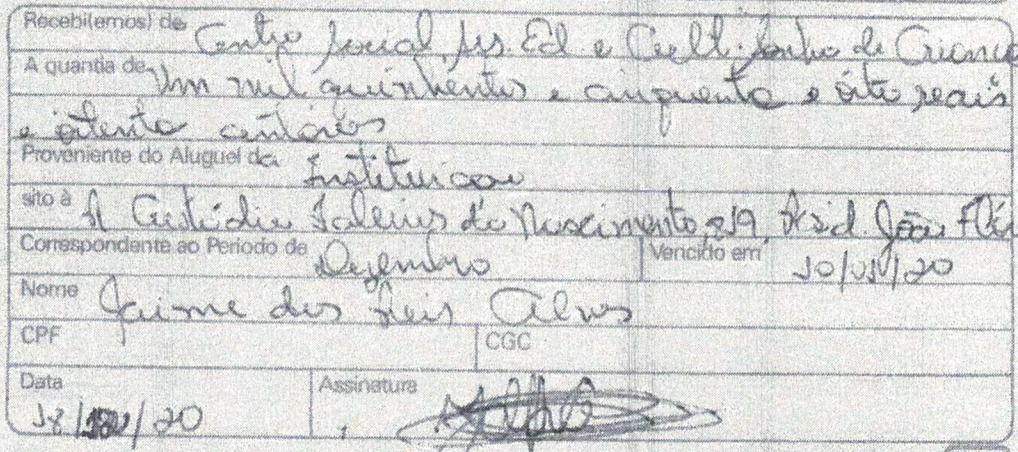 Recebi(emos) de Centro Social, Ass. Ed. e Cult. Sonho de Criança
A quantia de Um mil quinhentos e cinquenta e oito reais
e oitenta centavos
Proveniente do Aluguel da Instituicao
sito à R Custódio do Nascimento, 219, Resid. João
Correspondente ao Periodo de Dezembro Vencido em 10/ /20
Nome Jaime dos Reis Alves
CPF CGC
Data Assinatura
18/ /20